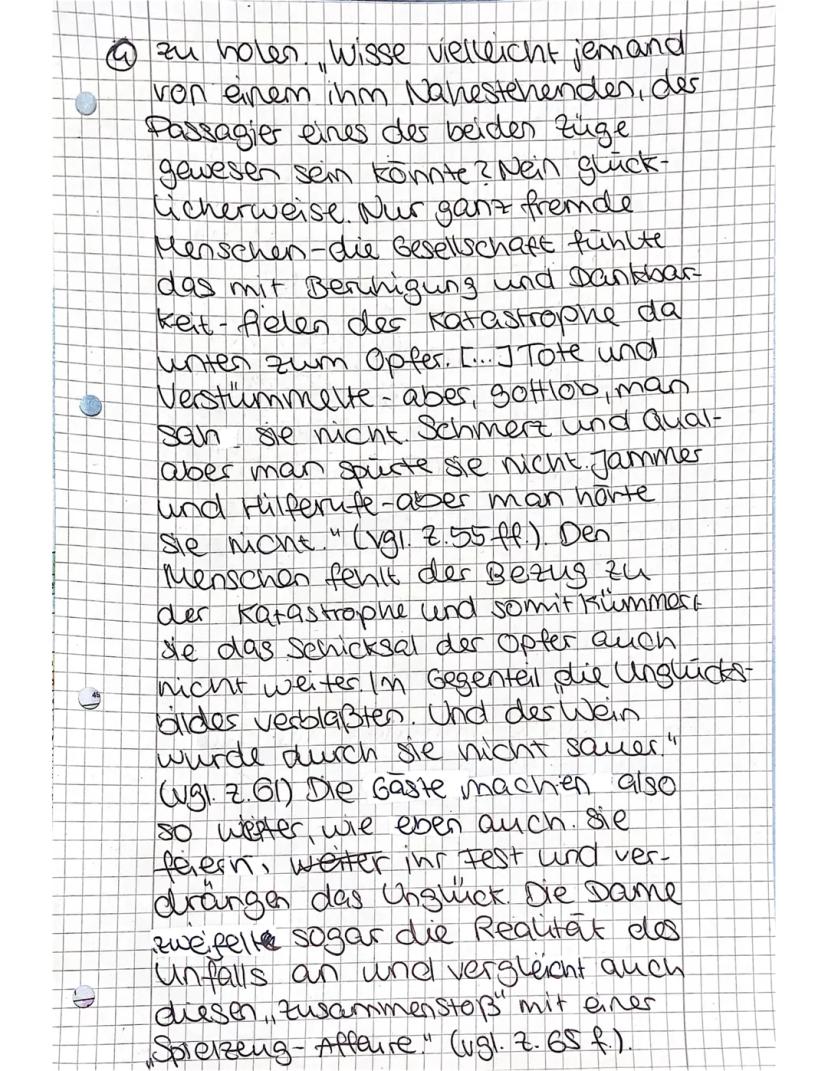 ④ zu holen. „Wisse vielleicht jemand
von einem ihm Nahestehenden, der
Passagier eines der beiden Züge
gewesen sein könnte? Nein glück-
licherweise. Nur ganz fremde
Menschen - die Gesellschaft fühlte
das mit Beruhigung und Dankbar-
keit - fielen der Katastrophe da
unten zum Opfer. [...] Tote und
Verstümmelte - aber, gottlob, man
sah sie nicht. Schmerz und Qual-
aber man spürte sie nicht. Jammer
und Hilferufe - aber man hörte
sie nicht." (vgl. Z. 55 ff.). Den
Menschen fehlt der Bezug zu
der Katastrophe und somit kümmert
sie das Schicksal der Opfer auch
nicht weiter. Im Gegenteil „die Unglücks-
bilder verblaßten. Und der Wein
wurde durch sie nicht sauer."
(vgl. Z. 61) Die Gäste machen also
so weiter, wie eben auch. Sie
feiern, weiter ihr Fest und ver-
drängen das Unglück. Die Dame
zweifelt sogar die Realität des
Unfalls an und vergleicht auch
diesen „Zusammenstoß" mit einer
„Spielzeug-Affeure." (vgl. Z. 65 f.).